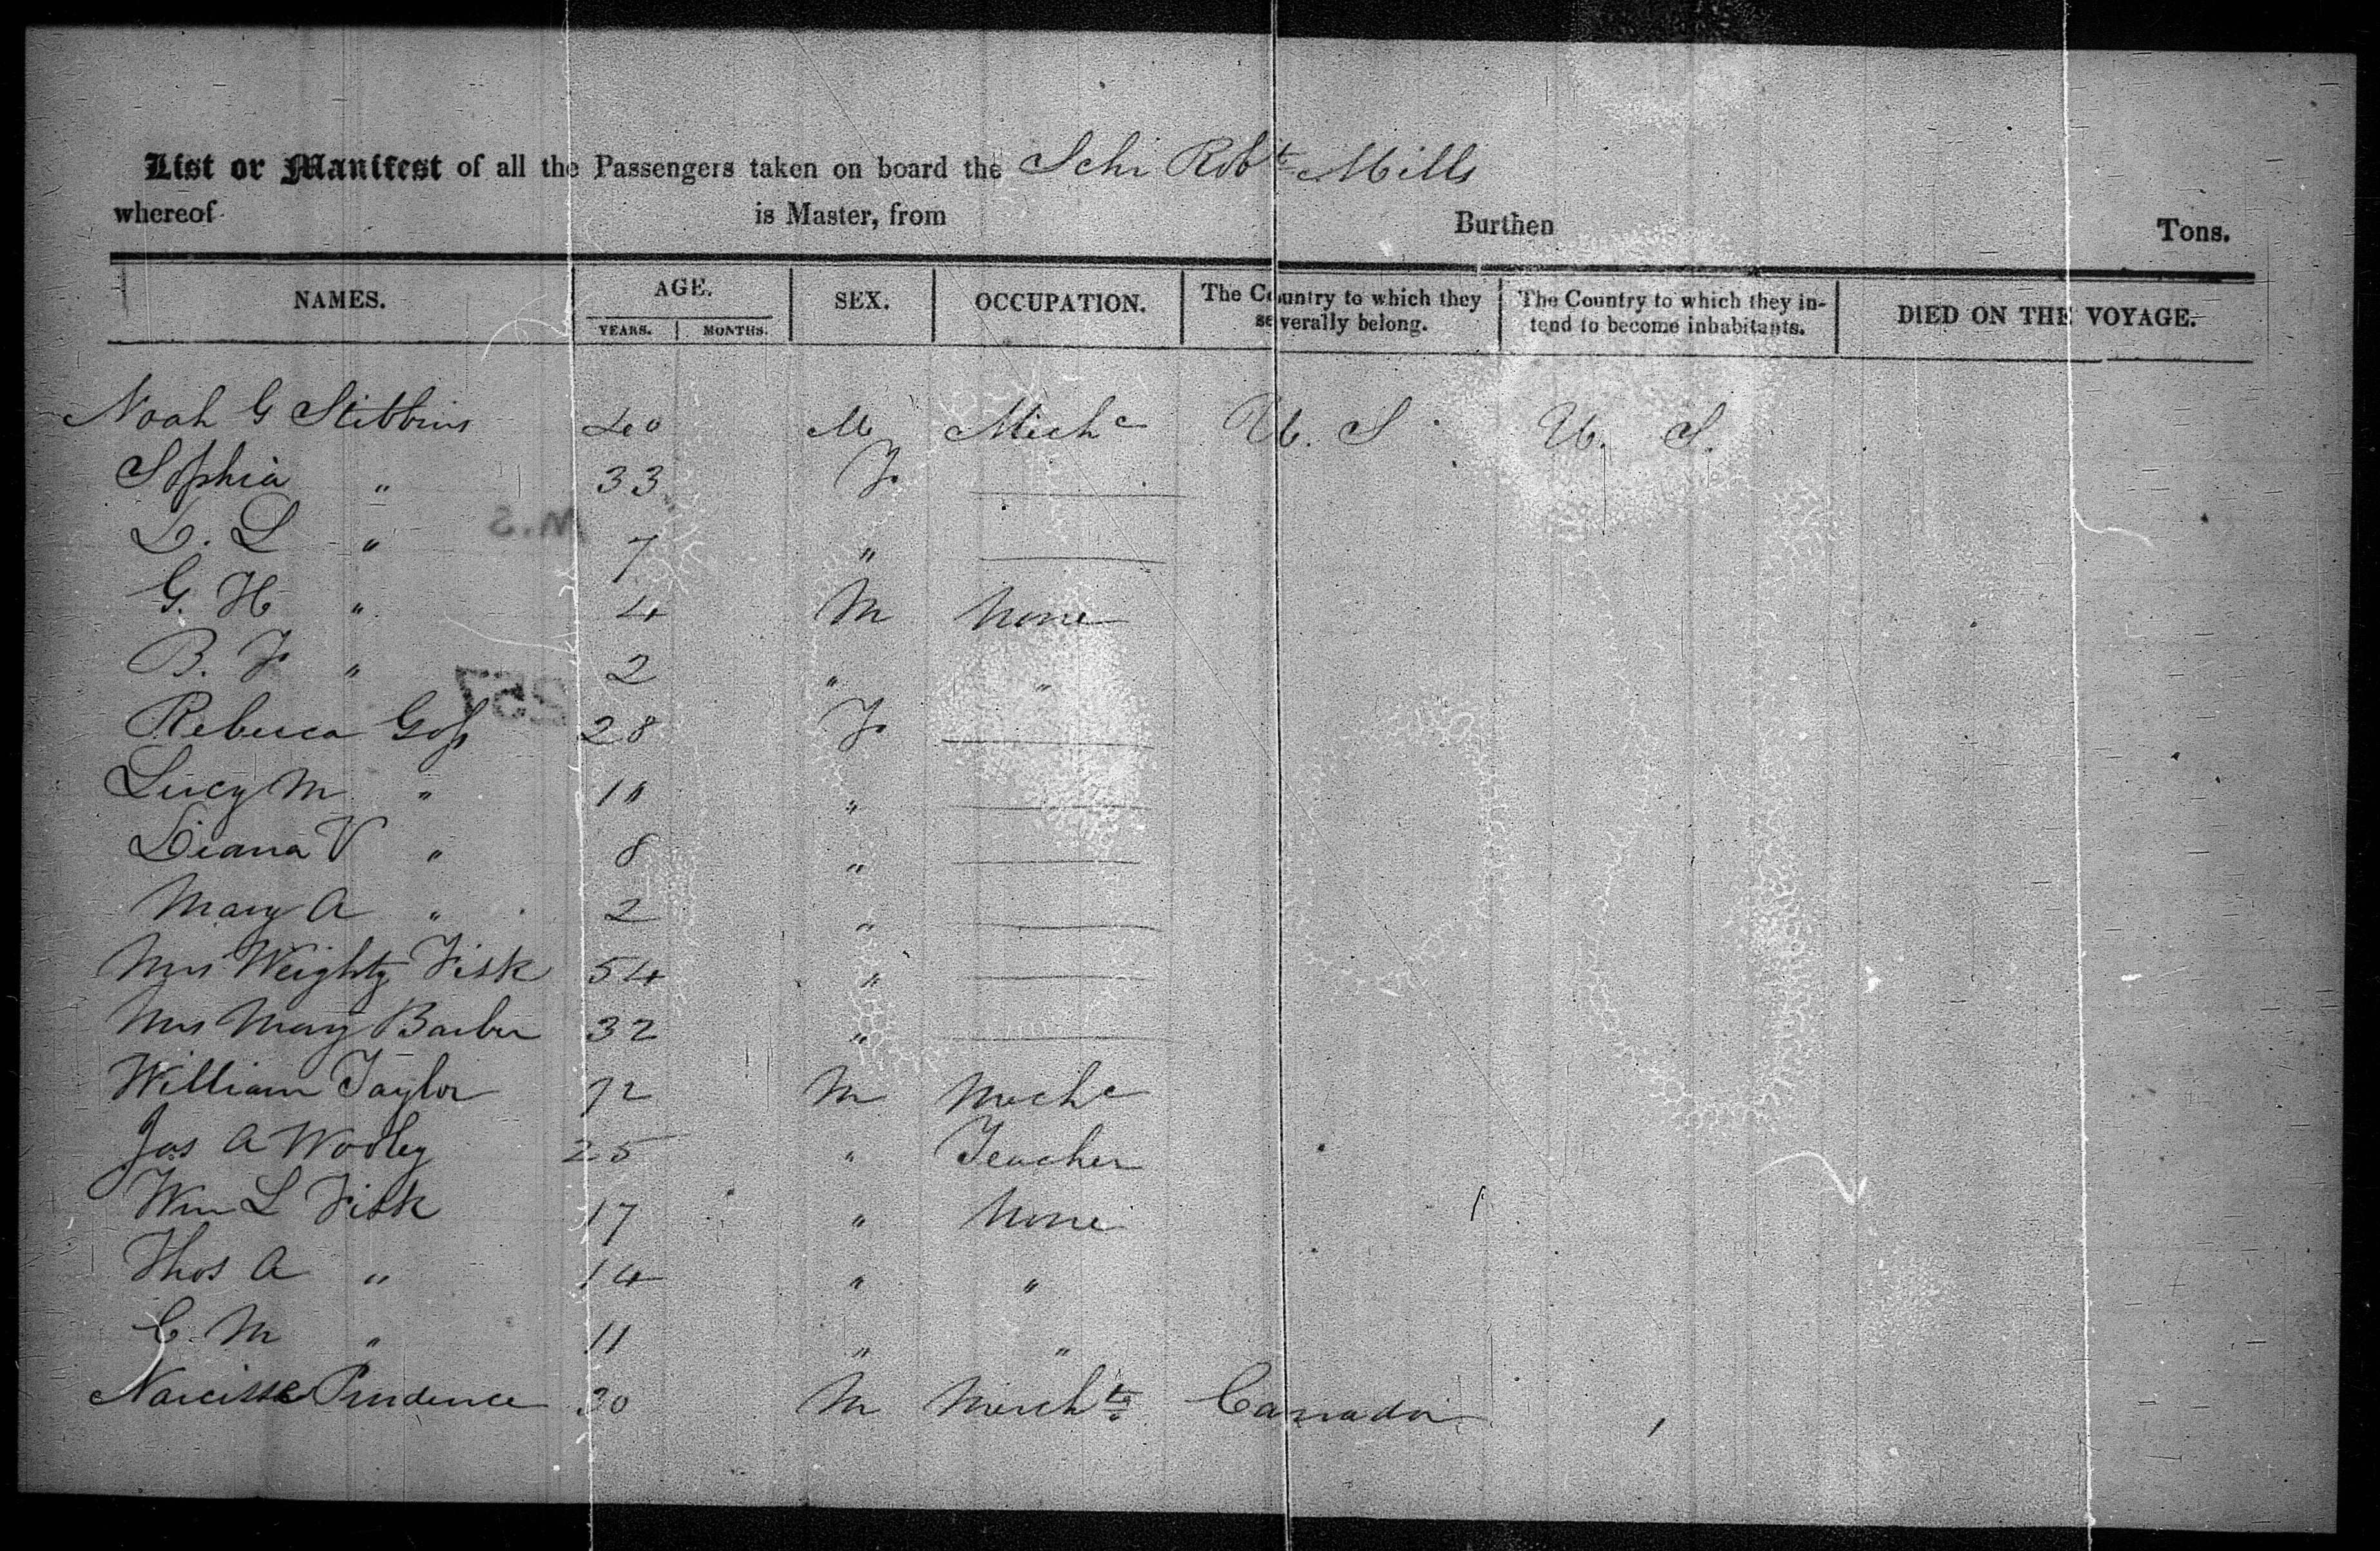 List or Manifest of all the Passengers taken on board the Schr Robt Mills
whereof is Master, from Burthen Tons.
NAMES. AGE. YEARS. MONTHS. SEX. OCCUPATION. The Country to which they severally belong. The Country to which they intend to become inhabitants. DIED ON THE VOYAGE.
Noah G Stibbins 40 M Mechc U. S U. S.
Sophia " 33 F
D. L " 7 "
M.S
G. H " 4 M None
B. F " 2 " "
257
Rebecca Goss 28 F
Lucy M " 10 "
Diana V " 8 "
Mary A " 2 "
Mrs Weighty Fisk 54 "
Mrs Mary Barber 32 "
William Taylor 72 M Mechc
Jas A Wooley 25 " Teacher
Wm L Fisk 17 " None
Thos A " 14 " "
C. M " 11 " "
Narcisse Prudence 30 M Mercht Canada